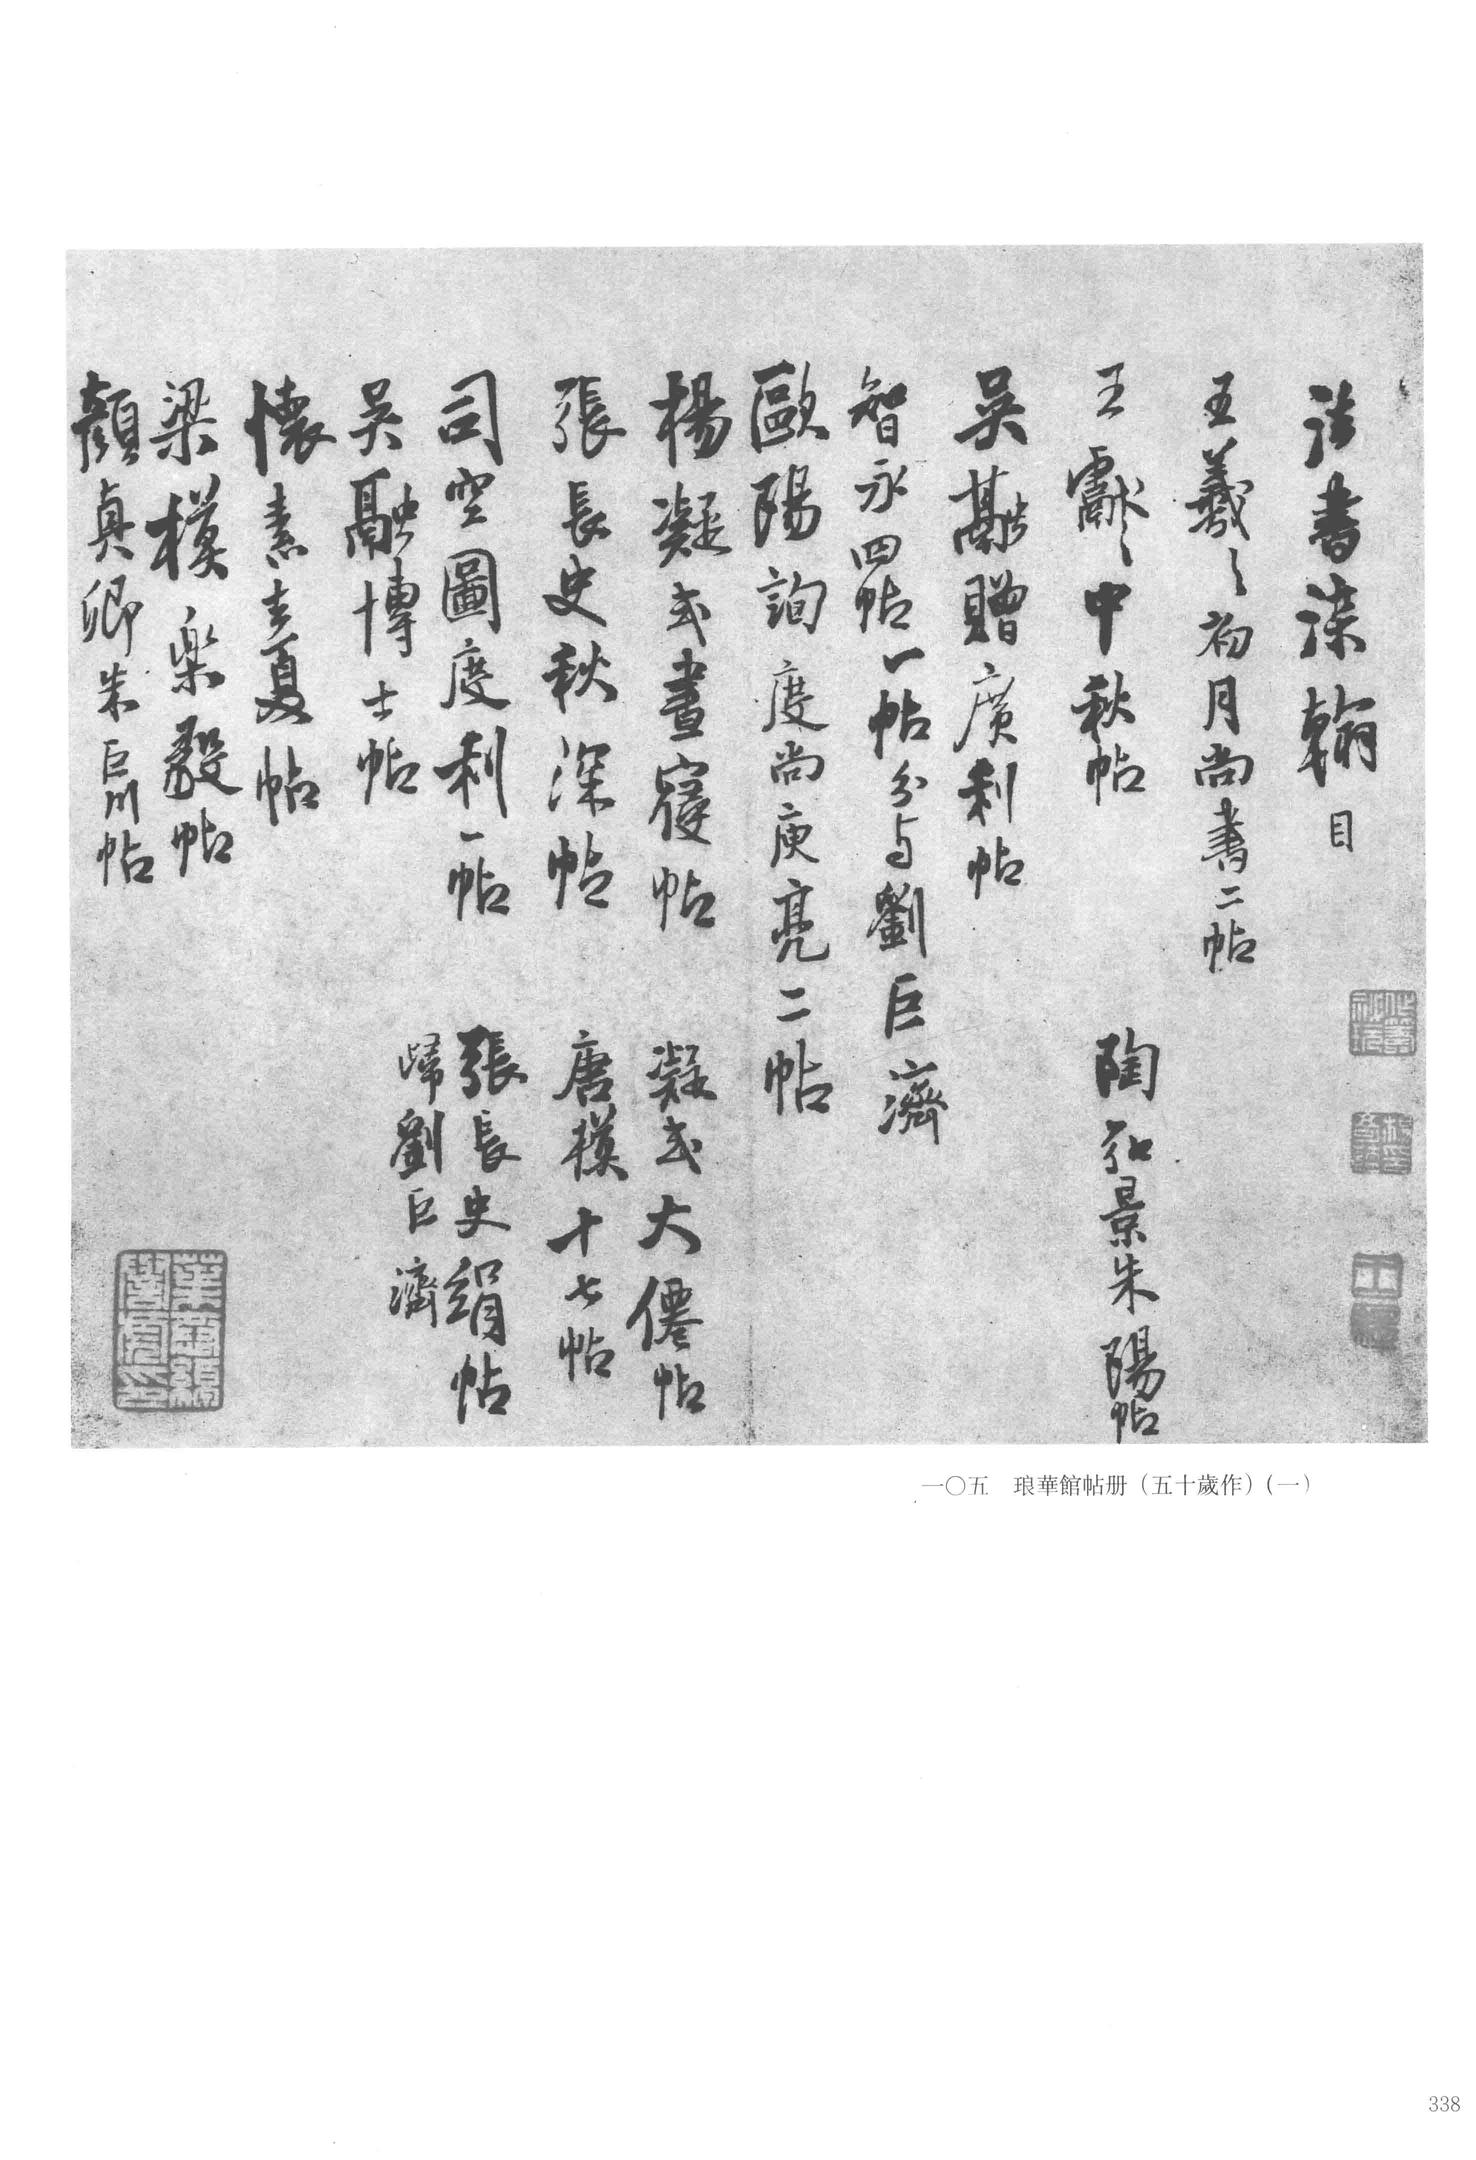 法書染翰目
王羲之初月尚書二帖
王獻之中秋帖
陶弘景朱陽帖
吳融贈廣利帖
智永四帖一帖分与劉巨濟
歐陽詢度尚庾亮二帖
楊凝式晝寢帖
凝式大僊帖
張長史秋深帖
唐模十七帖
司空圖度利一帖
張長史絹帖
歸劉巨濟
吳融博士帖
懷素夏帖
梁模樂毅帖
顏真卿朱巨川帖
一〇五 琅華館帖册（五十歲作）（一）
338